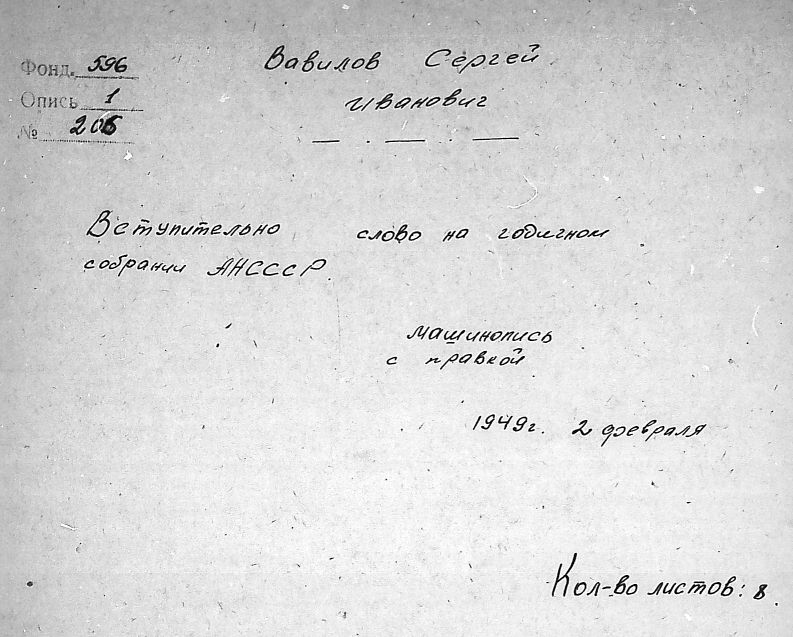 Фонд. 596
Опись 1
№ 206
Вавилов Сергей
Иванович
Вступительно слово на годичном
собрании АНСССР
машинопись
с правкой
1949г. 2 февраля
Кол-во листов: 8